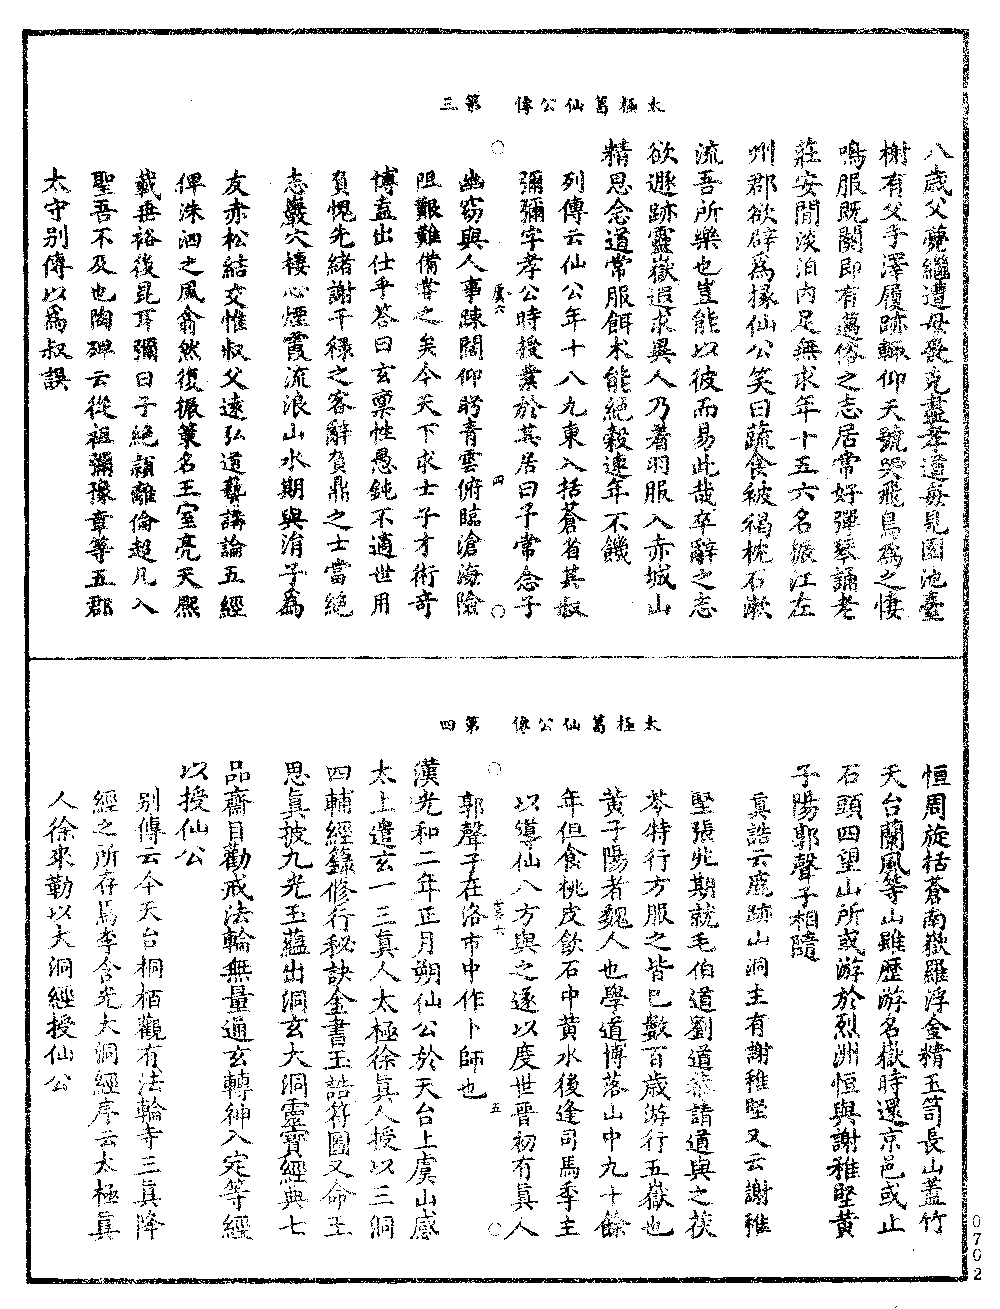 太極葛仙公傳　第三
八歲父薨繼遭母喪克盡孝道每見園池臺
榭有父手澤履跡輒仰天號哭飛鳥為之悽
鳴服既闋即有邁俗之志居常好彈琴誦老
莊安閒淡泊內足無求年十五六名振江左
州郡欲辟為掾仙公笑曰蔬食被褐枕石漱
流吾所樂也豈能以彼而易此哉卒辭之志
欲遯跡靈嶽遐求異人乃着羽服入赤城山
精思念道常服餌朮能絕穀連年不饑
列傳云仙公年十八九東入括蒼省其叔
彌彌字孝公時授業於其居曰子常念子
虞六
四
幽窈與人事踈闊仰眄青雲俯臨滄海險
阻艱難備嘗之矣今天下求士子才術奇
博盍出仕乎答曰玄稟性愚鈍不適世用
負愧先緒謝干祿之客辭負鼎之士當絕
志巖穴棲心煙霞流浪山水期與涓子為
友赤松結交惟叔父遠弘道藝講論五經
俾洙泗之風翕然復振策名王室亮天熙
載垂裕後昆耳彌曰子絕穎離倫超凡入
聖吾不及也陶碑云從祖彌豫章等五郡
太守別傳以為叔誤
太極葛仙公傳　第四
恒周旋括蒼南嶽羅浮金精玉笥長山蓋竹
天台蘭風等山雖歷游名嶽時還京邑或止
石頭四望山所或游於烈洲恒與謝稚堅黃
子陽郭聲子相隨
真誥云鹿跡山洞主有謝稚堅又云謝稚
堅張兆期就毛伯道劉道恭請道與之茯
苓特行方服之皆已數百歲游行五嶽也
黃子陽者魏人也學道博落山中九十餘
年但食桃皮飲石中黃水後逢司馬季主
以導仙八方與之遂以度世晉初有真人
五
郭聲子在洛市中作卜師也
漢光和二年正月朔仙公於天台上虞山感
太上遣玄一三真人太極徐真人授以三洞
四輔經籙修行秘訣金書玉誥符圖又命王
思真披九光玉蘊出洞玄大洞靈寶經典七
品齋目勸戒法輪無量通玄轉神入定等經
以授仙公
別傳云今天台桐栢觀有法輪寺三真降
經之所存焉李含光大洞經序云太極真
人徐來勒以大洞經授仙公
0702